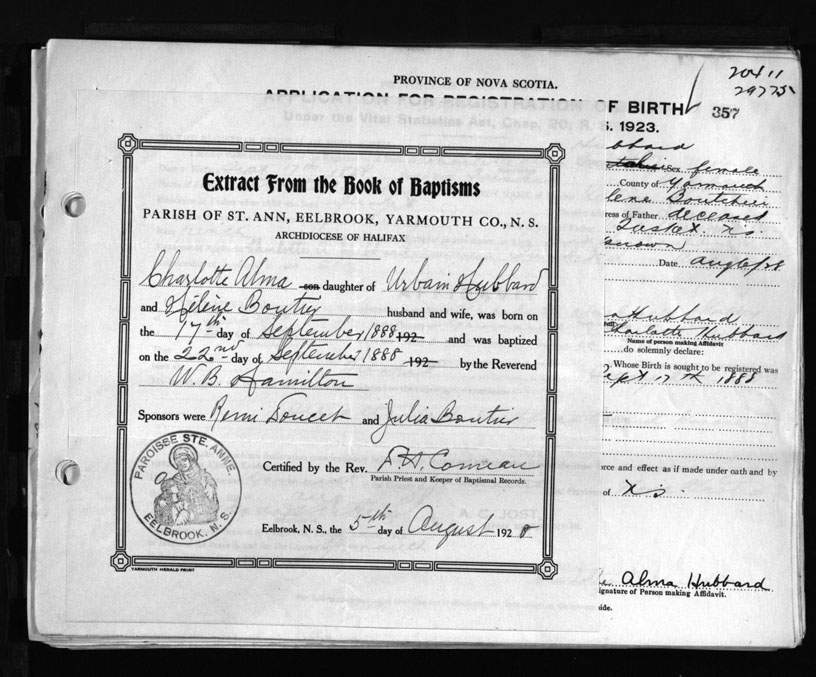 PROVINCE OF NOVA SCOTIA.
20411
29775
APPLICATION FOR REGISTRATION OF BIRTH
357
Under the Vital Statistics Act, Chap. 20, R. S. 1923.
Extract From the Book of Baptisms
PARISH OF ST. ANN, EELBROOK, YARMOUTH CO., N. S.
ARCHDIOCESE OF HALIFAX
Charlotte Alma son daughter of Urbain Hubbard
and Hélène Boutier husband and wife, was born on
the 17th day of September 1888 192 and was baptized
on the 22nd day of September 1888 192 by the Reverend
W. B. Hamilton
Sponsors were Remi Doucet and Julia Boutier
Certified by the Rev. D. H. Comeau
Parish Priest and Keeper of Baptismal Records.
PAROISSE STE. ANNE
EELBROOK, N. S.
Eelbrook, N. S., the 5th day of August 1928
YARMOUTH HERALD PRINT
Sex female
County of Yarmouth
ress of Father deceased
Tusket N.S.
Date Aug 6/28
Hubbard
Charlotte Hubbard
Name of person making Affidavit
do solemnly declare:
Whose Birth is sought to be registered was
Sept 17th 1888
rce and effect as if made under oath and by
of
A. C. JOST
Alma Hubbard
ignature of Person making Affidavit.
ide.